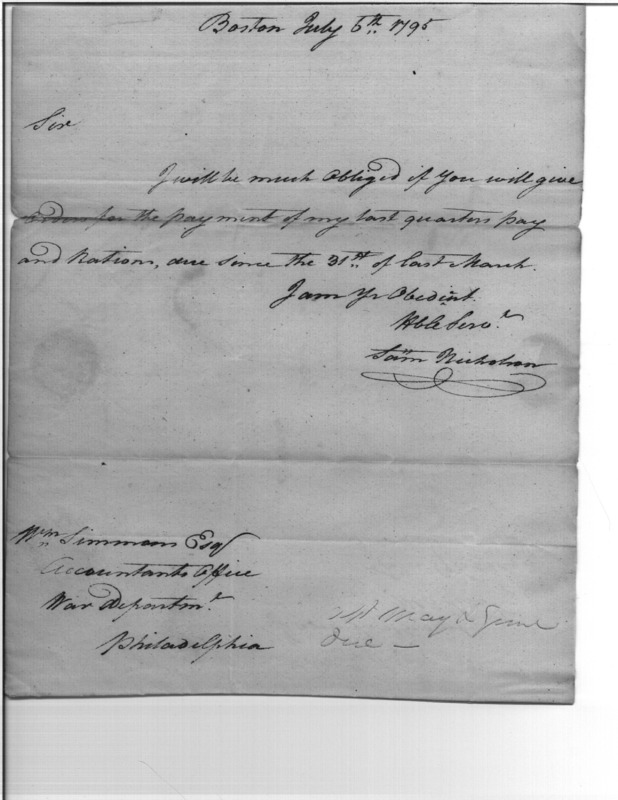 Boston July 6th 1795
Sir
I will be much Obliged if You will give
orders for the payment of my last quarters pay
and Rations, due since the 31st of last March.
I am Yr Obedient
Hble Servt
Samm Nicholson
Wm Simmons Esqr
Accountants Office
War Departmt
Philadelphia
May & June
due —